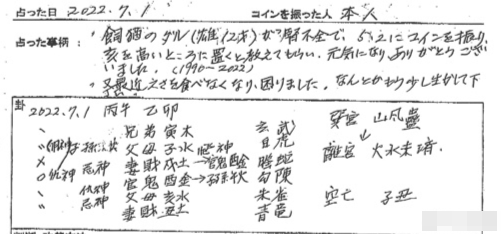 占った日 2022.7.1 コインを振った人 本人
占った事柄: "飼猫のダル(雄、12才)が腎不全で、 にコインを振り、
亥を高いところに置くと教えてもらい、元気になり、ありがとうござ
いました。(1990〜2022)
"又最近えさを食べなくなり、困りました。なんとかもう少し生かして下
卦 2022.7.1 丙午 乙卯
兄弟寅木 玄武 巽宮 山風蠱
父母子水 白虎
妻財戌土→官鬼酉金 螣蛇 離宮 火水未済
官鬼酉金→ 勾陳
父母亥水 朱雀 空亡 子丑
妻財丑土 青竜
忌神
仇神
仇神
忌神